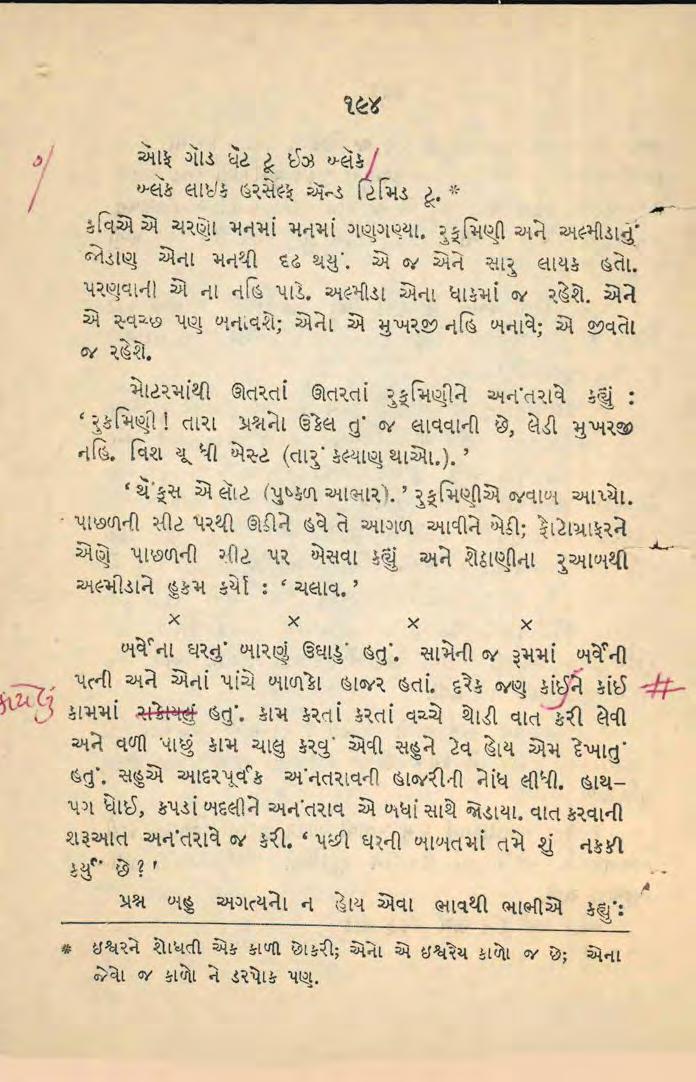 ૧૯૪
ઑફ ગૉડ ધૅટ ટૂ ઈઝ બ્લૅક
બ્લૅક લાઇક હરસેલ્ફ ઍન્ડ ટિમિડ ટૂ. *
કવિએ એ ચરણો મનમાં મનમાં ગણગણ્યા. રુક્મિણી અને અલ્મીડાનું
જોડાણ એના મનથી દૃઢ થયું. એ જ એને સારુ લાયક હતો.
પરણવાની એ ના નહિ પાડે. અલ્મીડા એના ધાકમાં જ રહેશે. એને
એ સ્વચ્છ પણ બનાવશે; એનો એ મુખરજી નહિ બનાવે; એ જીવતો
જ રહેશે.
મોટરમાંથી ઊતરતાં ઊતરતાં રુક્મિણીને અનંતરાવે કહ્યું :
‘ રુકમિણી ! તારા પ્રશ્નનો ઉકેલ તું જ લાવવાની છે, લેડી મુખરજી
નહિ. વિશ યૂ ધી બેસ્ટ (તારું કલ્યાણ થાઓ.). ’
‘ થૅંક્સ એ લૉટ (પુષ્કળ આભાર). ’ રુક્મિણીએ જવાબ આપ્યો.
પાછળની સીટ પરથી ઊઠીને હવે તે આગળ આવીને બેઠી; ફોટોગ્રાફરને
એણે પાછળની સીટ પર બેસવા કહ્યું અને શેઠાણીના રુઆબથી
અલ્મીડાને હુકમ કર્યો : ‘ ચલાવ. ’
× × × ×
બર્વેના ઘરનું બારણું ઉઘાડું હતું. સામેની જ રૂમમાં બર્વેની
પત્ની અને એનાં પાંચે બાળકો હાજર હતાં. દરેક જણ કાંઈને કાંઈ #
કામમાં હતું. કામ કરતાં કરતાં વચ્ચે થોડી વાત કરી લેવી
અને વળી પાછું કામ ચાલુ કરવું એવી સહુને ટેવ હોય એમ દેખાતું
હતું. સહુએ આદરપૂર્વક અંનતરાવની હાજરીની નોંધ લીધી. હાથ–
પગ ધોઈ, કપડાં બદલીને અનંતરાવ એ બધાં સાથે જોડાયા. વાત કરવાની
શરૂઆત અનંતરાવે જ કરી. ‘ પછી ઘરની બાબતમાં તમે શું નકકી
કર્યું છે ? ’
પ્રશ્ન બહુ અગત્યનો ન હોય એવા ભાવથી ભાભીએ કહ્યું :
* ઇશ્વરને શોધતી એક કાળી છોકરી; એનો એ ઇશ્વરેય કાળો જ છે; એના
જેવો જ કાળો ને ડરપોક પણ.